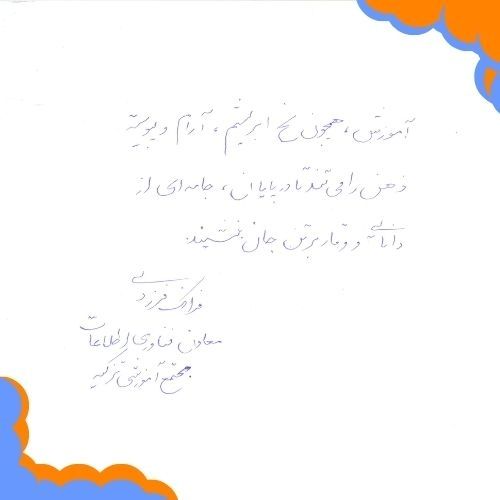 آموزش، همچون نخ ابریشم، آرام و پیوسته
ذهن را می تند تا در پایان، جامه ای از
دانایی و وقار بر تن جان بنشیند.
فرانک فرزدی
معاون فناوری اطلاعات
مجتمع آموزشی تزکیه